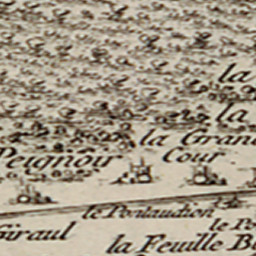 la
la
la Gran
Peignoir Cour
le Pontaudion
le Po
Giraul
la Feuille B